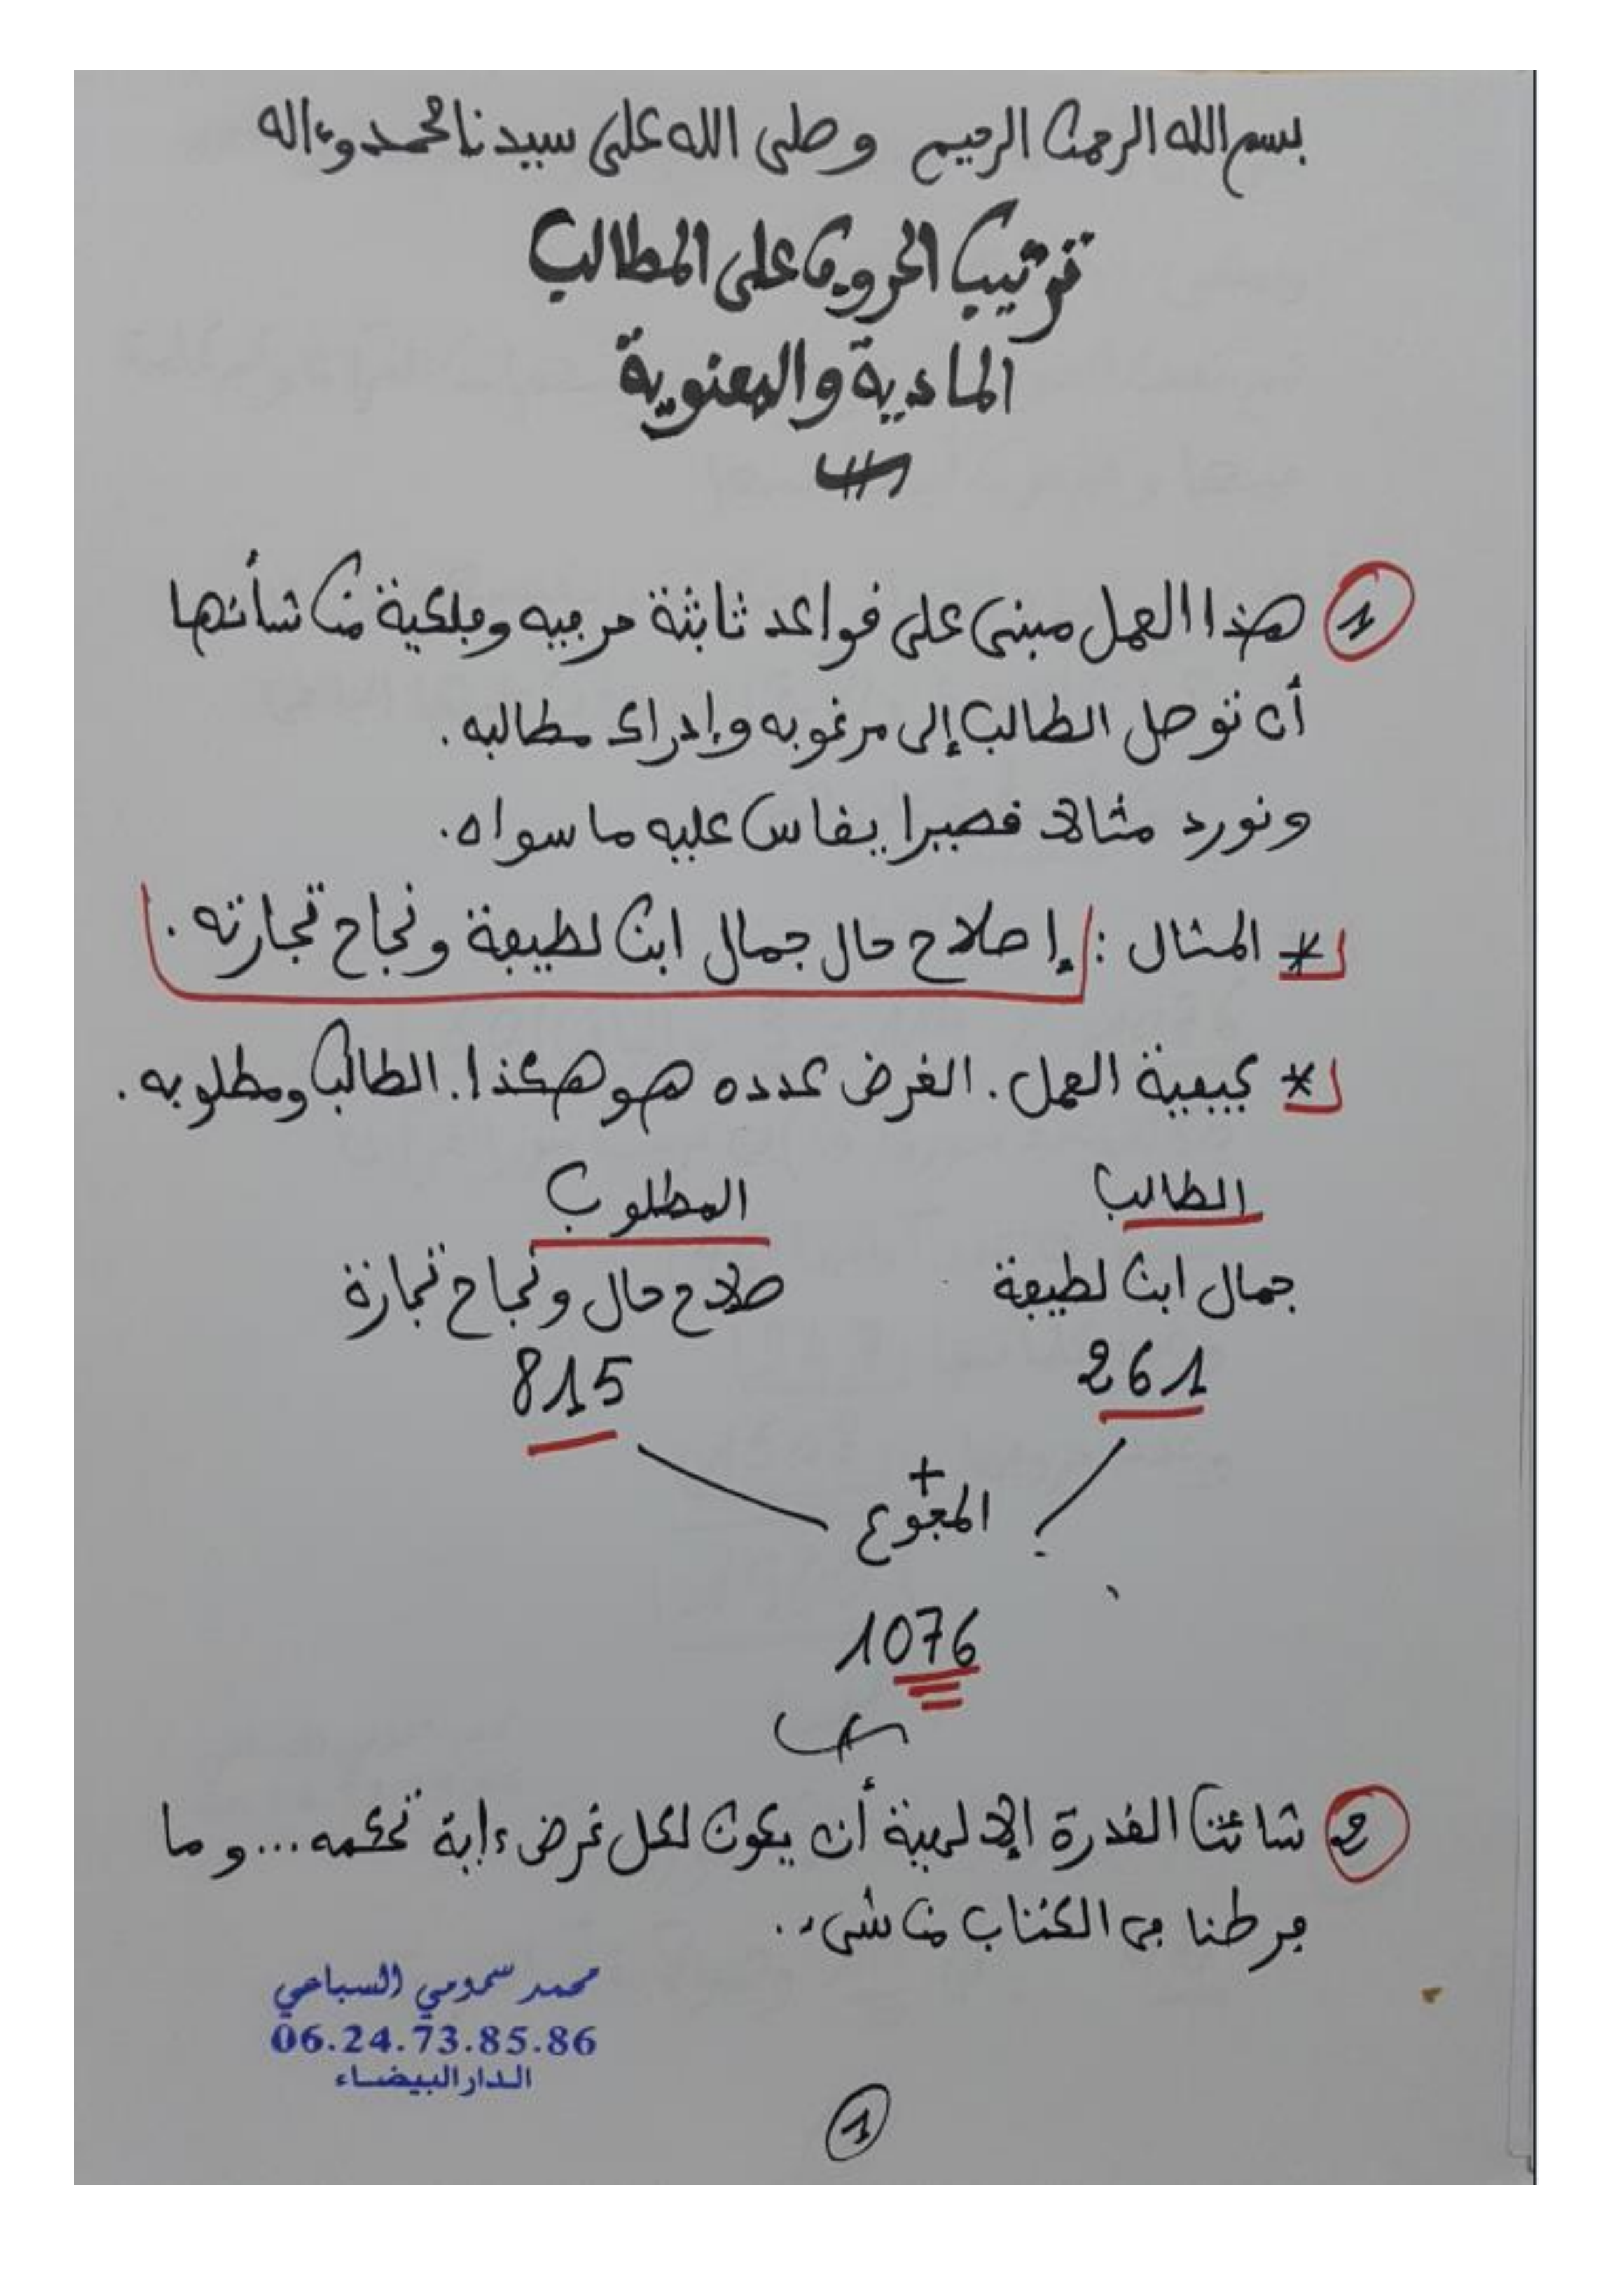 بسم الله الرحمن الرحيم وصلى الله على سيدنا محمد وءاله
ترتيب الحروف على المطالب
المادية والمعنوية
1 هذا العمل مبني على قواعد ثابتة حرفيه وفلكية من شأنها
أن توصل الطالب إلى مرغوبه وإدراك مطالبه.
ونورد مثالا قصيرا يقاس عليه ما سواه.
* المثال : إصلاح حال جمال ابن لطيفة ونجاح تجارته.
* كيفية العمل. الغرض عدده هو هكذا. الطالب ومطلوبه.
الطالب المطلوب
جمال ابن لطيفة صلاح حال ونجاح تجارة
261 815
+
المجموع
1076
2 شائت القدرة الإلهية أن يكون لكل غرض ءاية تحكمه... وما
فرطنا في الكتاب من شيء.
محمد سمومي السباعي
06.24.73.85.86
الدار البيضاء
1